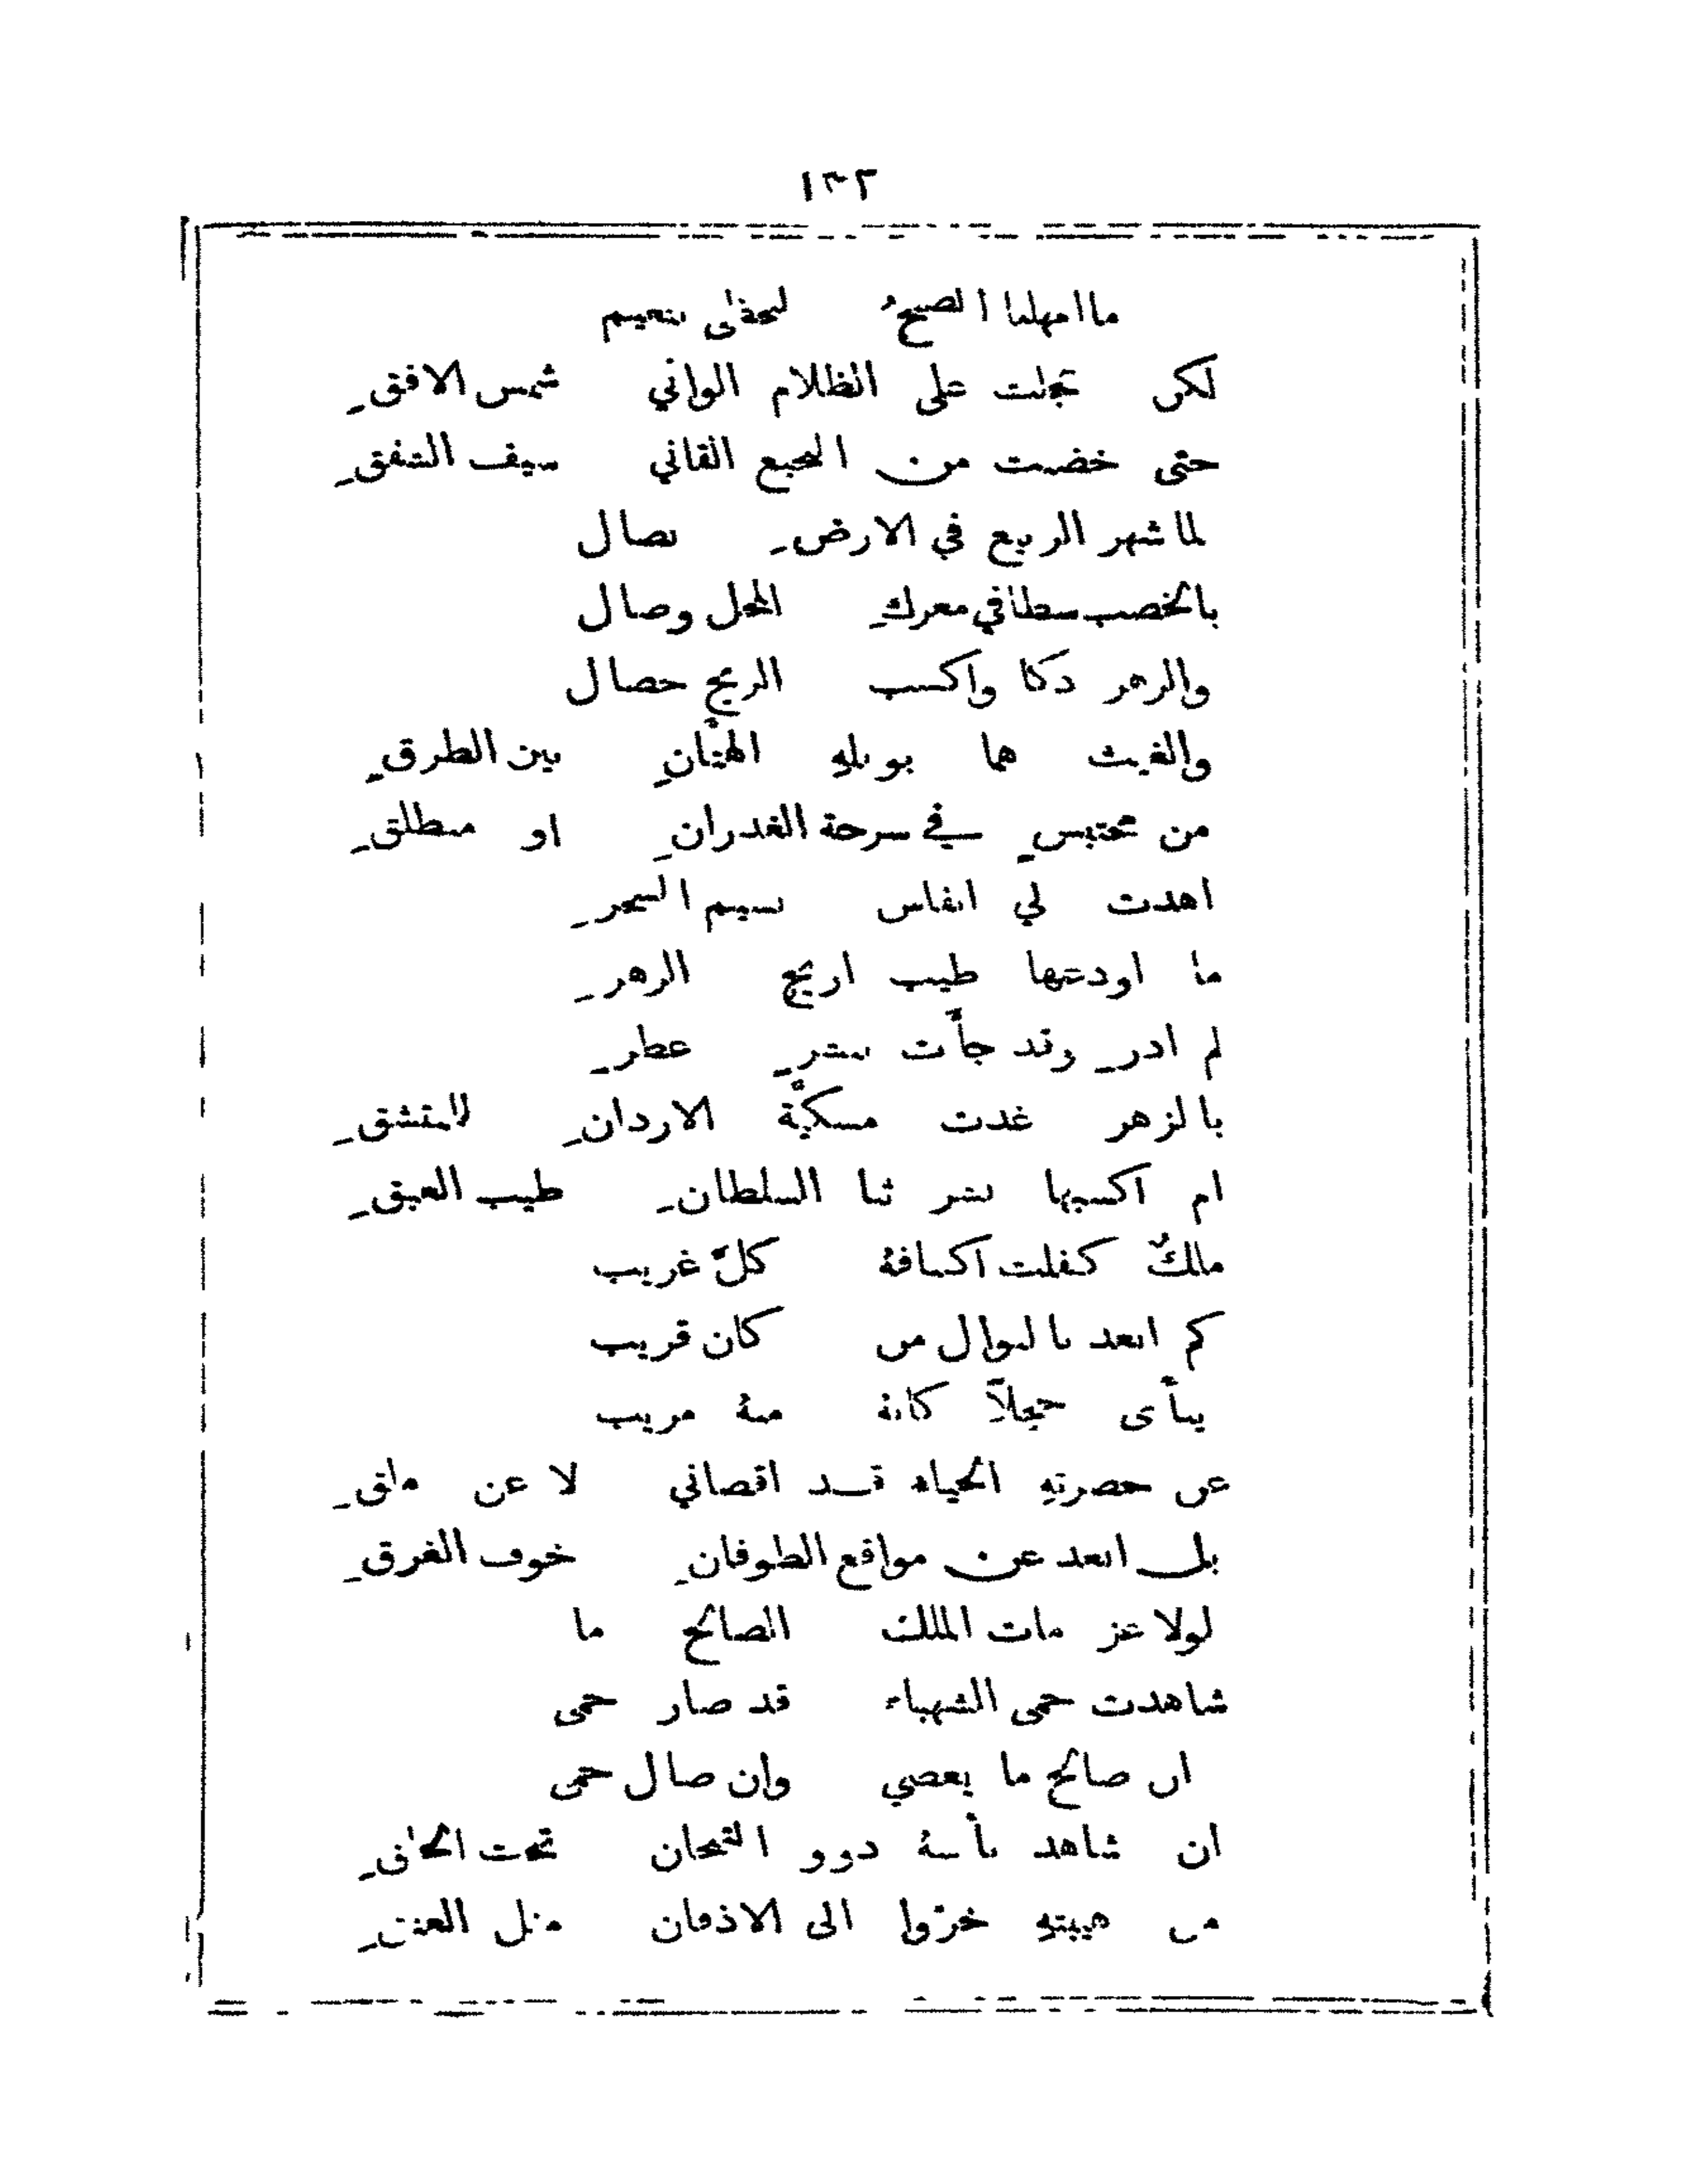 ١٣٢
ما امهلنا الصبحُ لنحظى بنعيم
لكن تجلت على الظلام الواني شمس الافقِ
حتى خضبت من النجيع القاني سيف الشفقِ
لما شهر الربيع في الارضِ نصال
بالخصب سطا في معركِ المحل وصال
والزهر ذكا واكسب الريح خصال
والغيث هما بوبلهِ الهتَّانِ بين الطرقِ
من محتبسٍ في سرحة الغدرانِ او منطلقِ
اهدت لي انفاس نسيم السحرِ
ما اودعتها طيب اريج الزهرِ
لم ادرِ وقد جأَت بنشرٍ عطرِ
بالزهر غدت مسكيَّة الاردانِ للمنتشقِ
ام اكسبها نشر ثنا السلطانِ طيب العبقِ
ملكٌ كفلت اكنافهُ كلَّ غريب
كم ابعد بالنوال من كان قريب
ينأَى خجلاً كانهُ منهُ مريب
عن حضرتهِ الحياء قد اقصاني لا عن ملقِ
بل ابعد عن مواقع الطوفانِ خوف الغرقِ
لولا عزمات الملك الصالح ما
شاهدت حمى الشهباء قد صار حمى
ان صالح ما يعصي وان صال حمى
ان شاهد بأسهُ ذوو التيجان تحت الحلقِ
من هيبتهِ خرّوا الى الاذقان مثل العنقِ